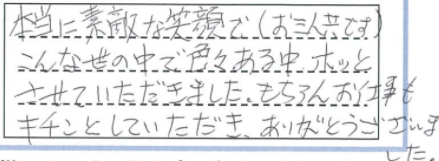 本当に素敵な笑顔で(お三人共です)
こんな世の中で色々ある中、ホッと
させていただきました。もちろんお仕事も
キチンとしていただき、ありがとうございま
した。